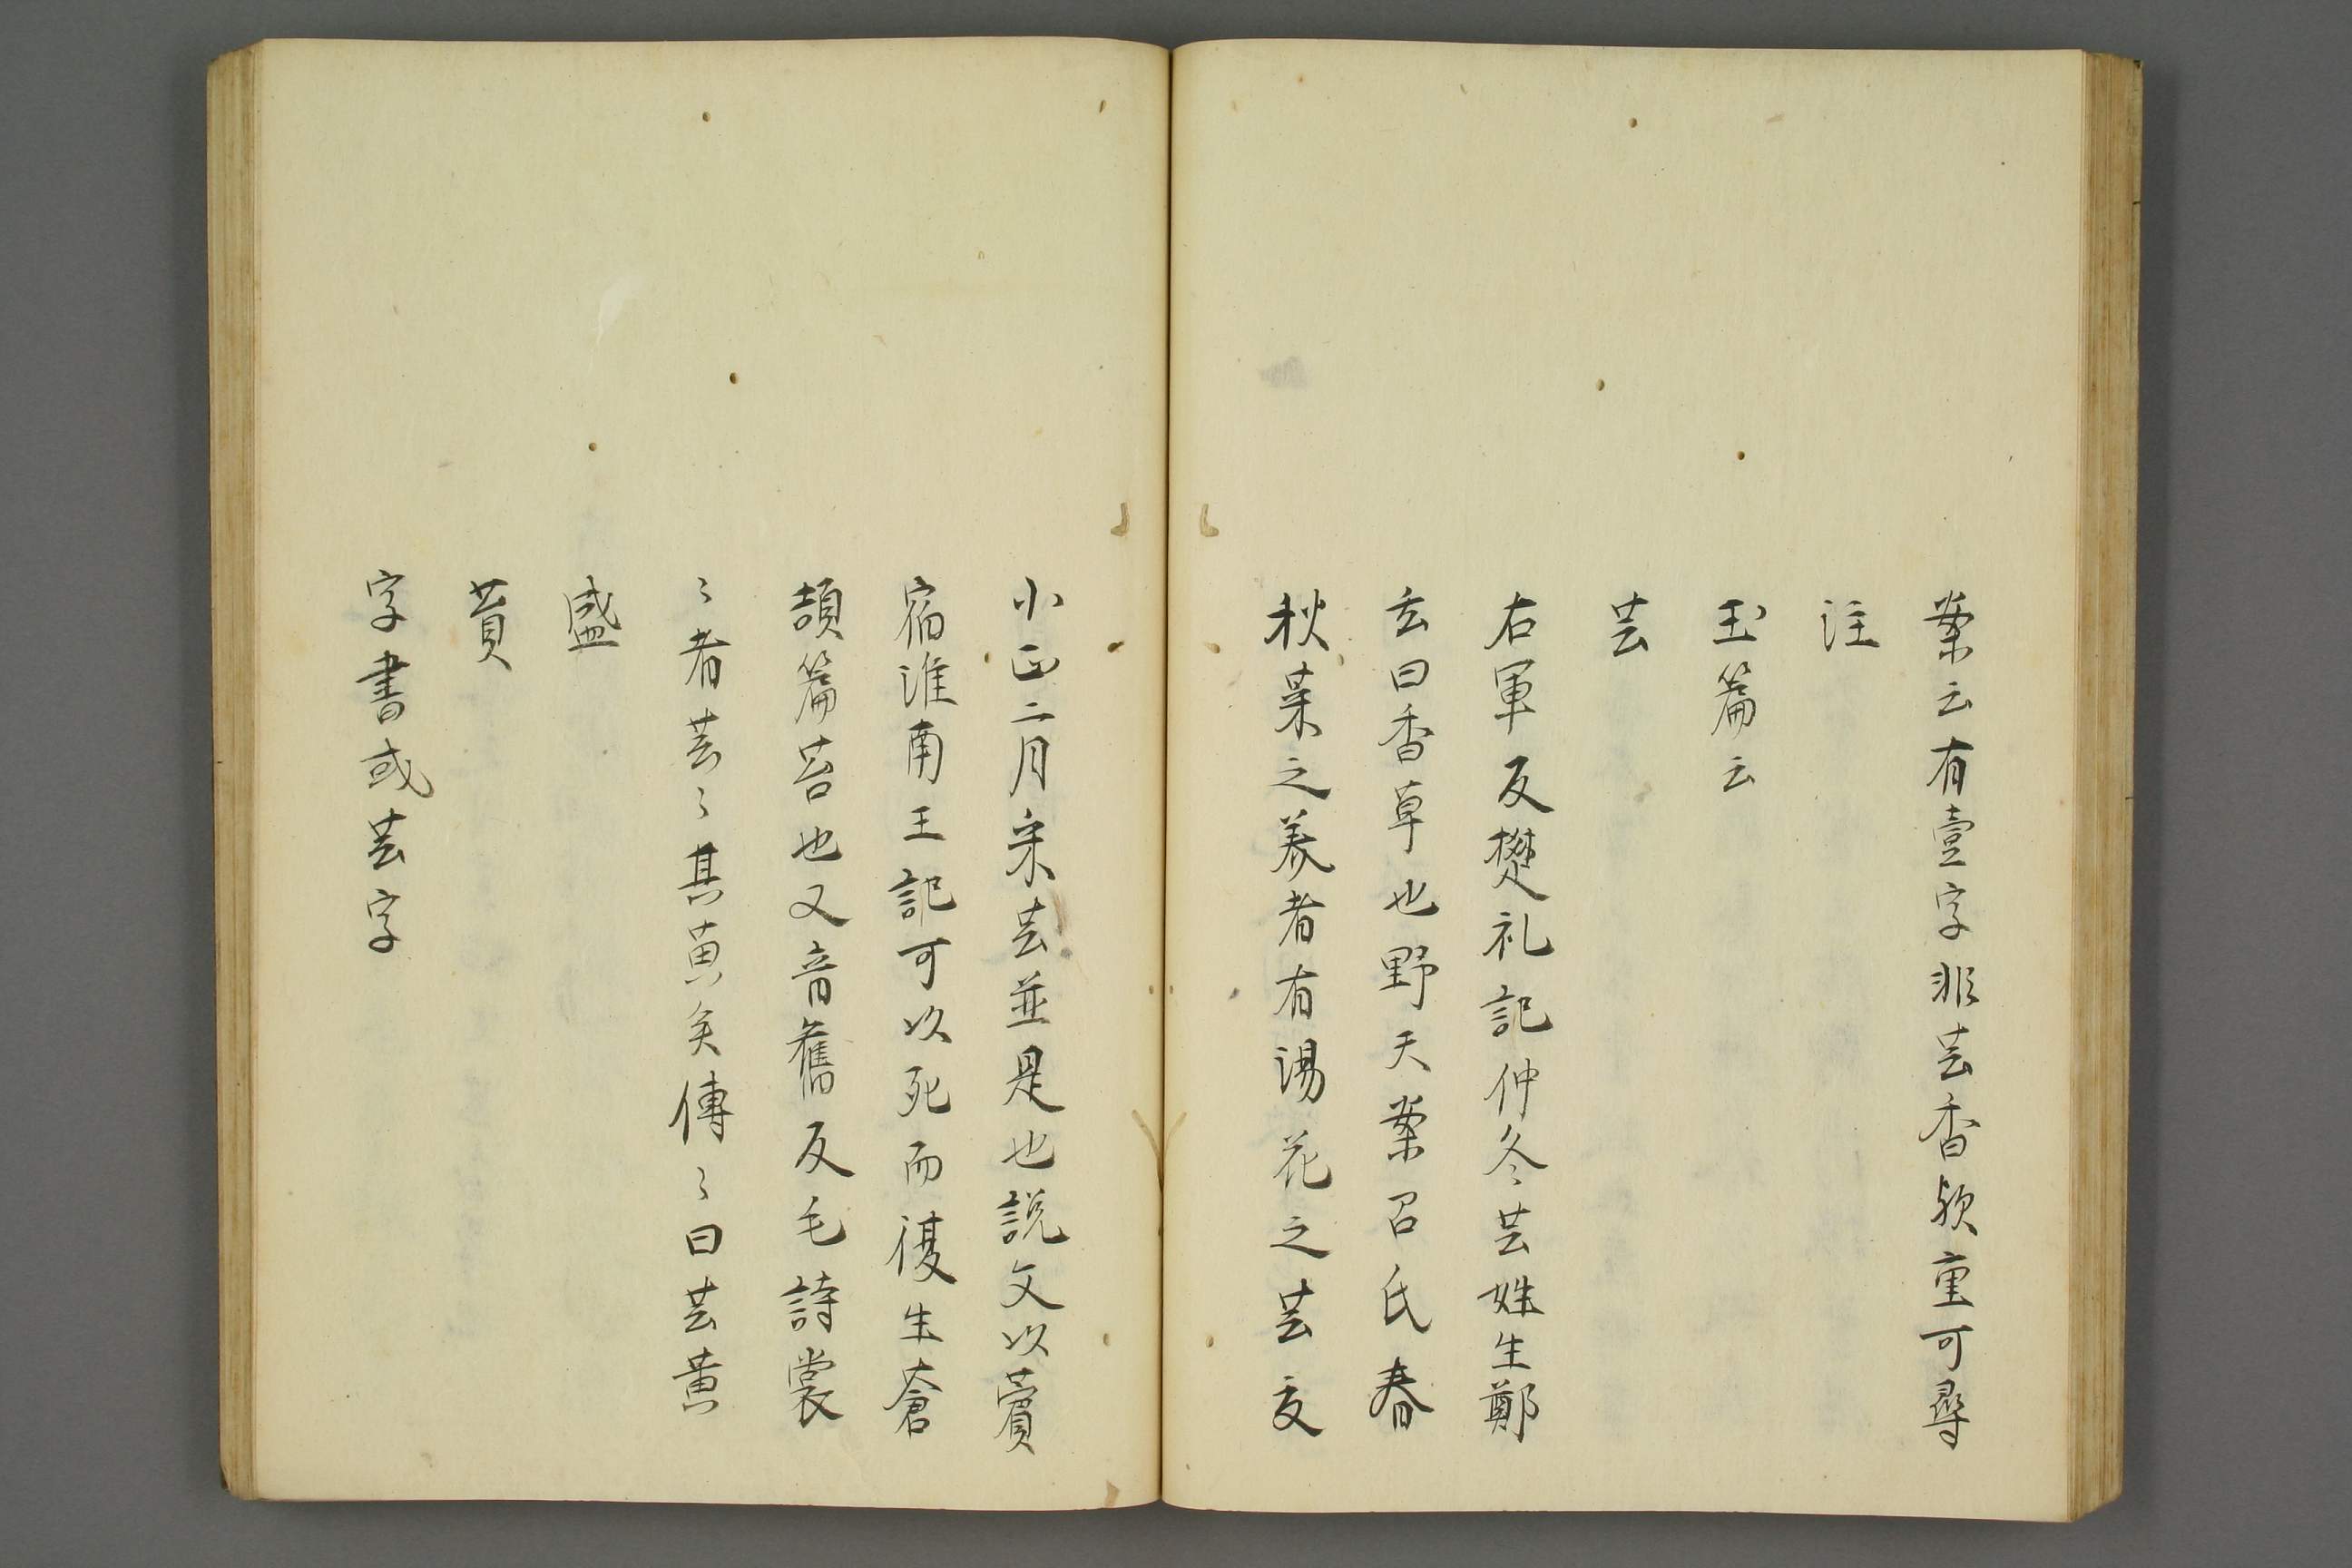 葉云有壹字非芸香歟重可尋
注
玉篇云
芸
右軍反樷礼記仲冬芸姓生鄭
玄曰香草也野天葉召氏春
秋菜之美者有湯花之芸受
小正二月采芸並是也説文以蕒
宿淮南王記可以死而復生蒼
頡篇苔也又音舊反毛詩裳
〻者芸〻其黄矣傳〻曰芸黄
盛
蒷
字書或芸字